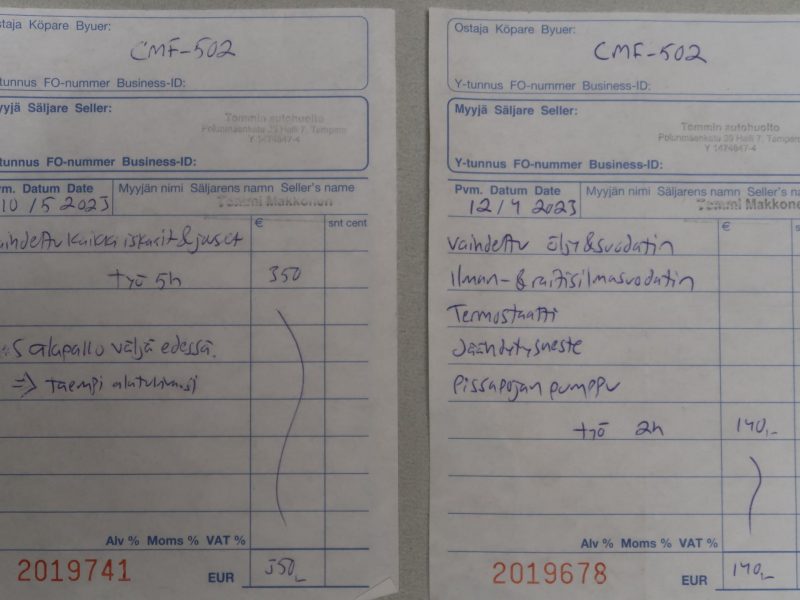 staja Köpare Byuer:
CMF-502
-tunnus FO-nummer Business-ID:
yyjä Säljare Seller:
Tommin autohuolto
Polunmäenkatu 39 Halli 7, Tampere
Y 1474647-4
-tunnus FO-nummer Business-ID:
vm. Datum Date
Myyjän nimi Säljarens namn Seller's name
10/5 2023
Tommi Makkonen
€
snt cent
aihdettu kaikki iskarit & jouset
työ 5h 350
alapallo väljä edessä.
=> taempi alatukivarsi
Alv % Moms % VAT %
2019741
EUR
350,-
Ostaja Köpare Byuer:
CMF-502
Y-tunnus FO-nummer Business-ID:
Myyjä Säljare Seller:
Tommin autohuolto
Polunmäenkatu 39 Halli 7, Tampere
Y 1474647-4
Y-tunnus FO-nummer Business-ID:
Pvm. Datum Date
Myyjän nimi Säljarens namn Seller's nam
12/4 2023
Tommi Makkonen
€
snt
vaihdettu öljy & suodatin
Ilman- & raitisilmasuodatin
Termostaatti
Jäähdytysneste
Pissapojan pumppu
työ 2h 140,-
Alv % Moms % VAT %
2019678
EUR
140,-